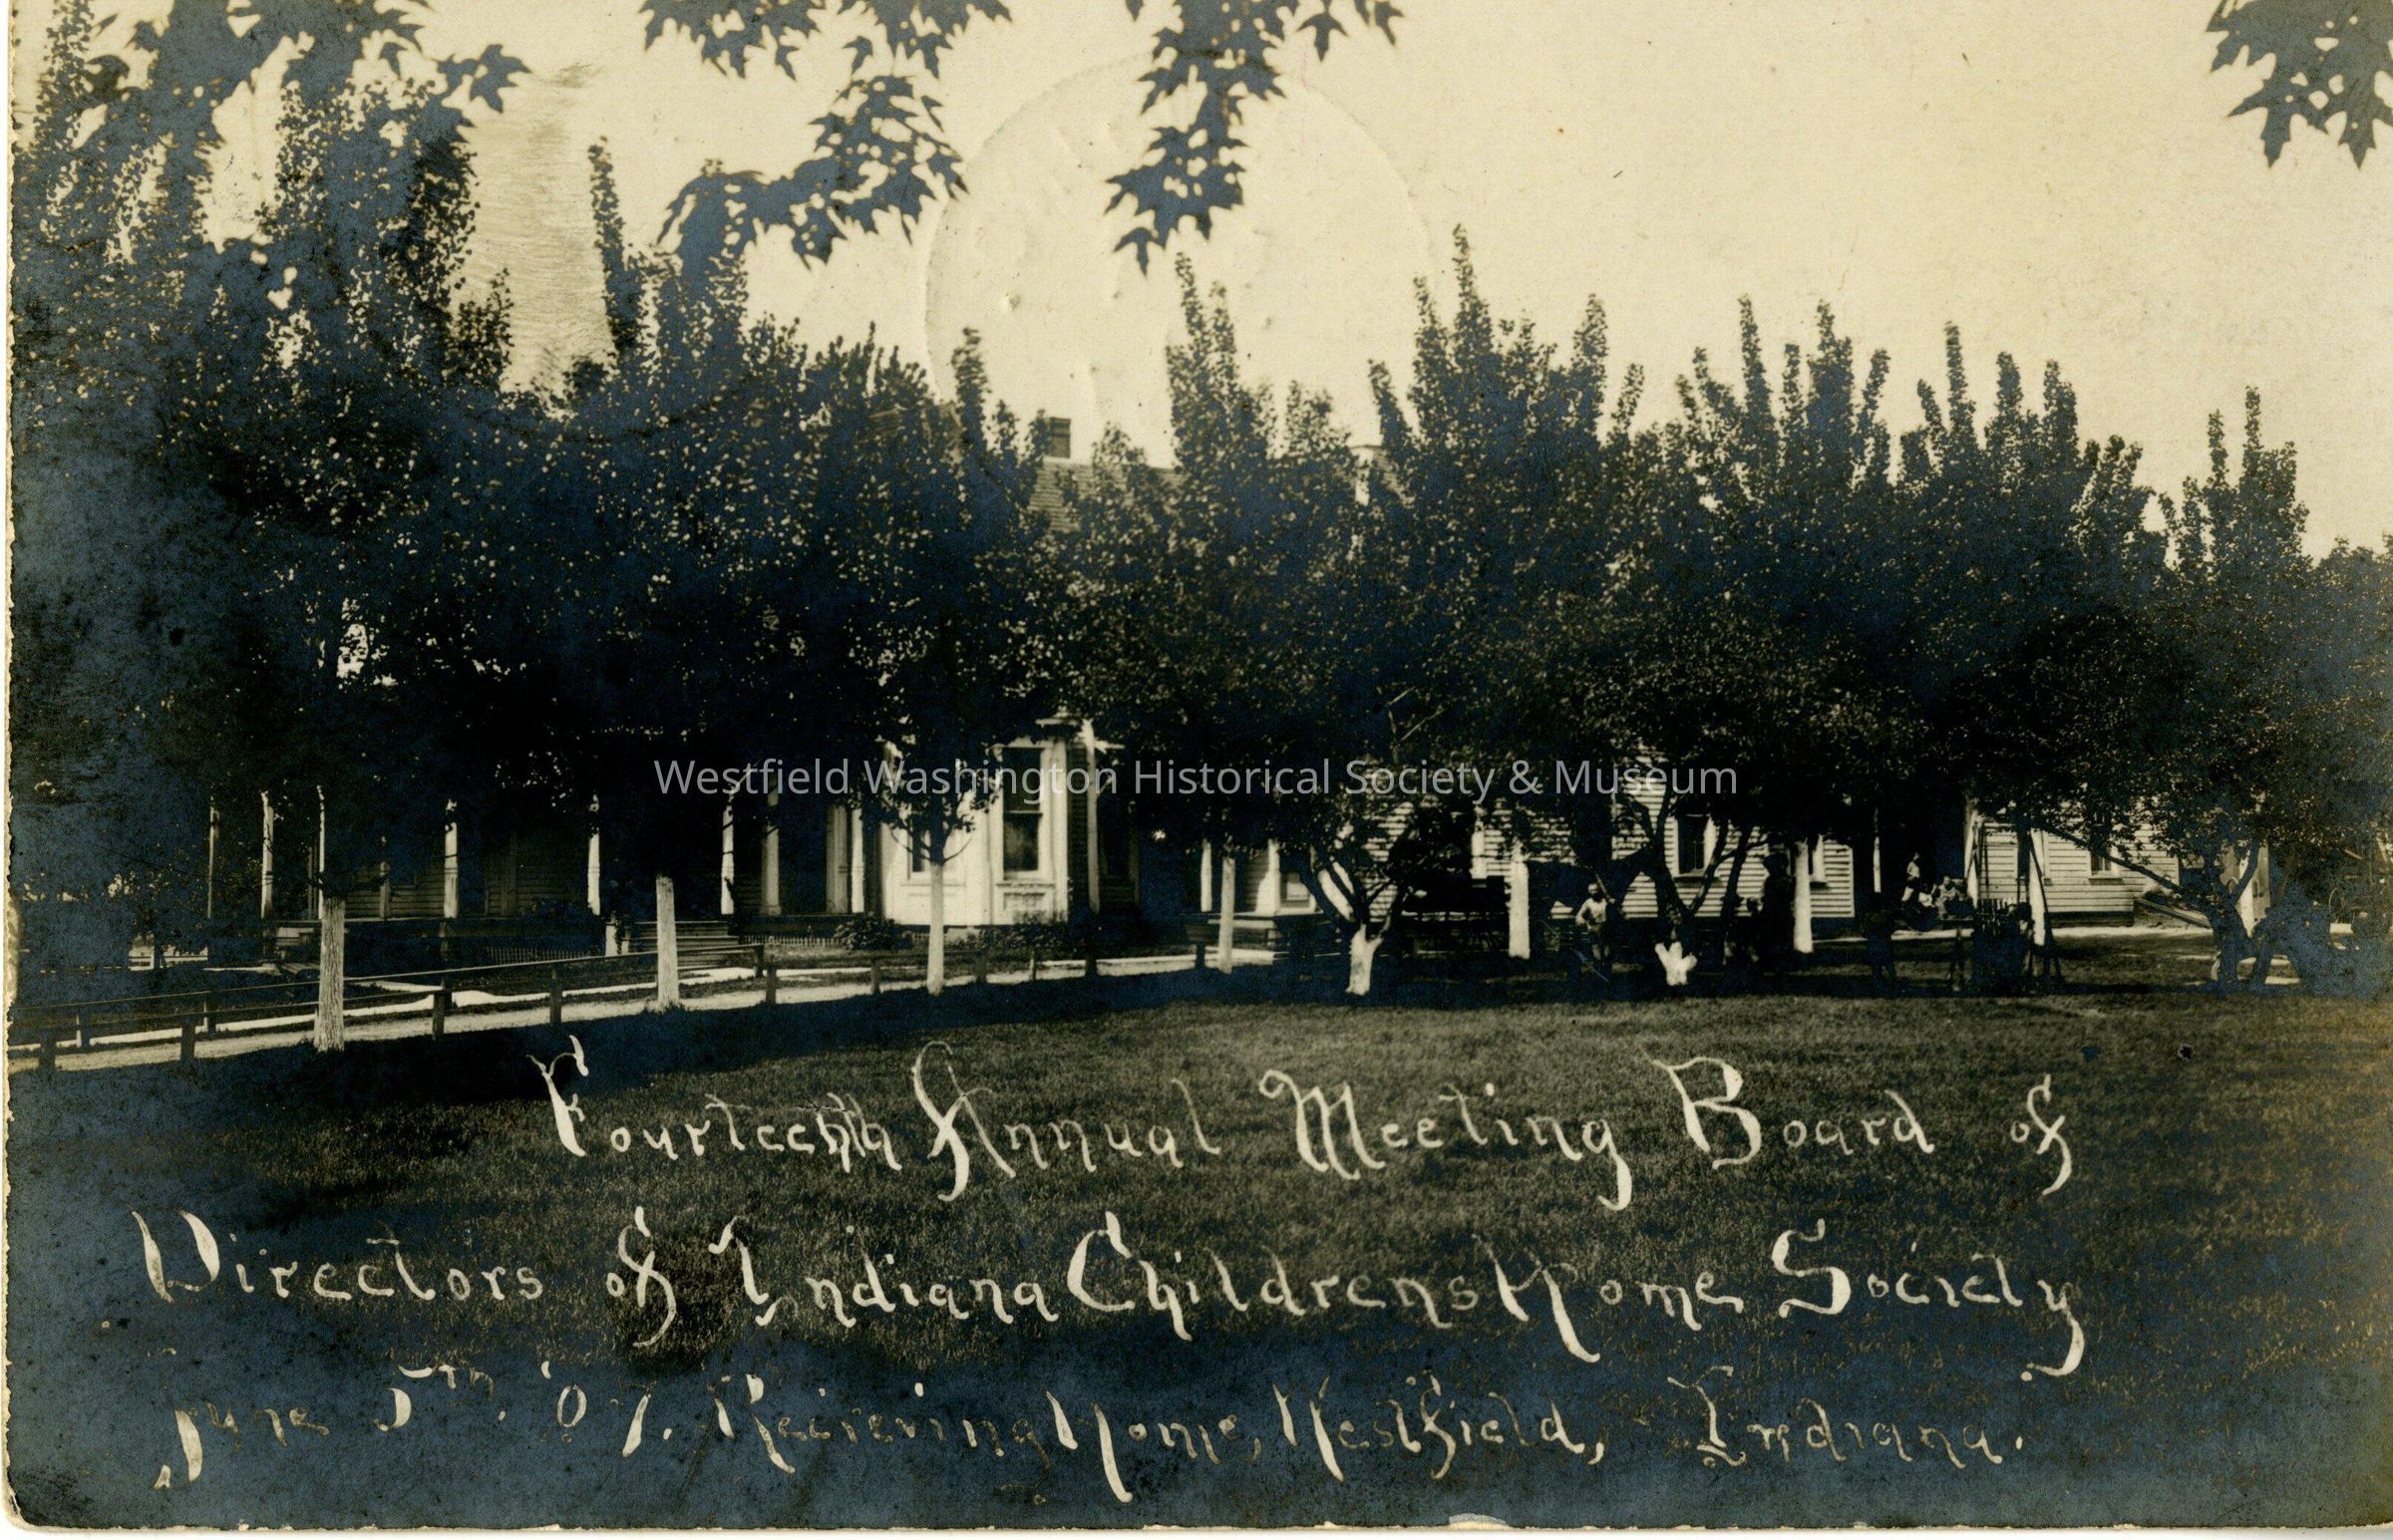 Westfield Washington Historical Society & Museum
Fourteenth Annual Meeting Board of
Directors of Indiana Childrens Home Society
June 5th. '07. Recieving Home, Westfield, Indiana.